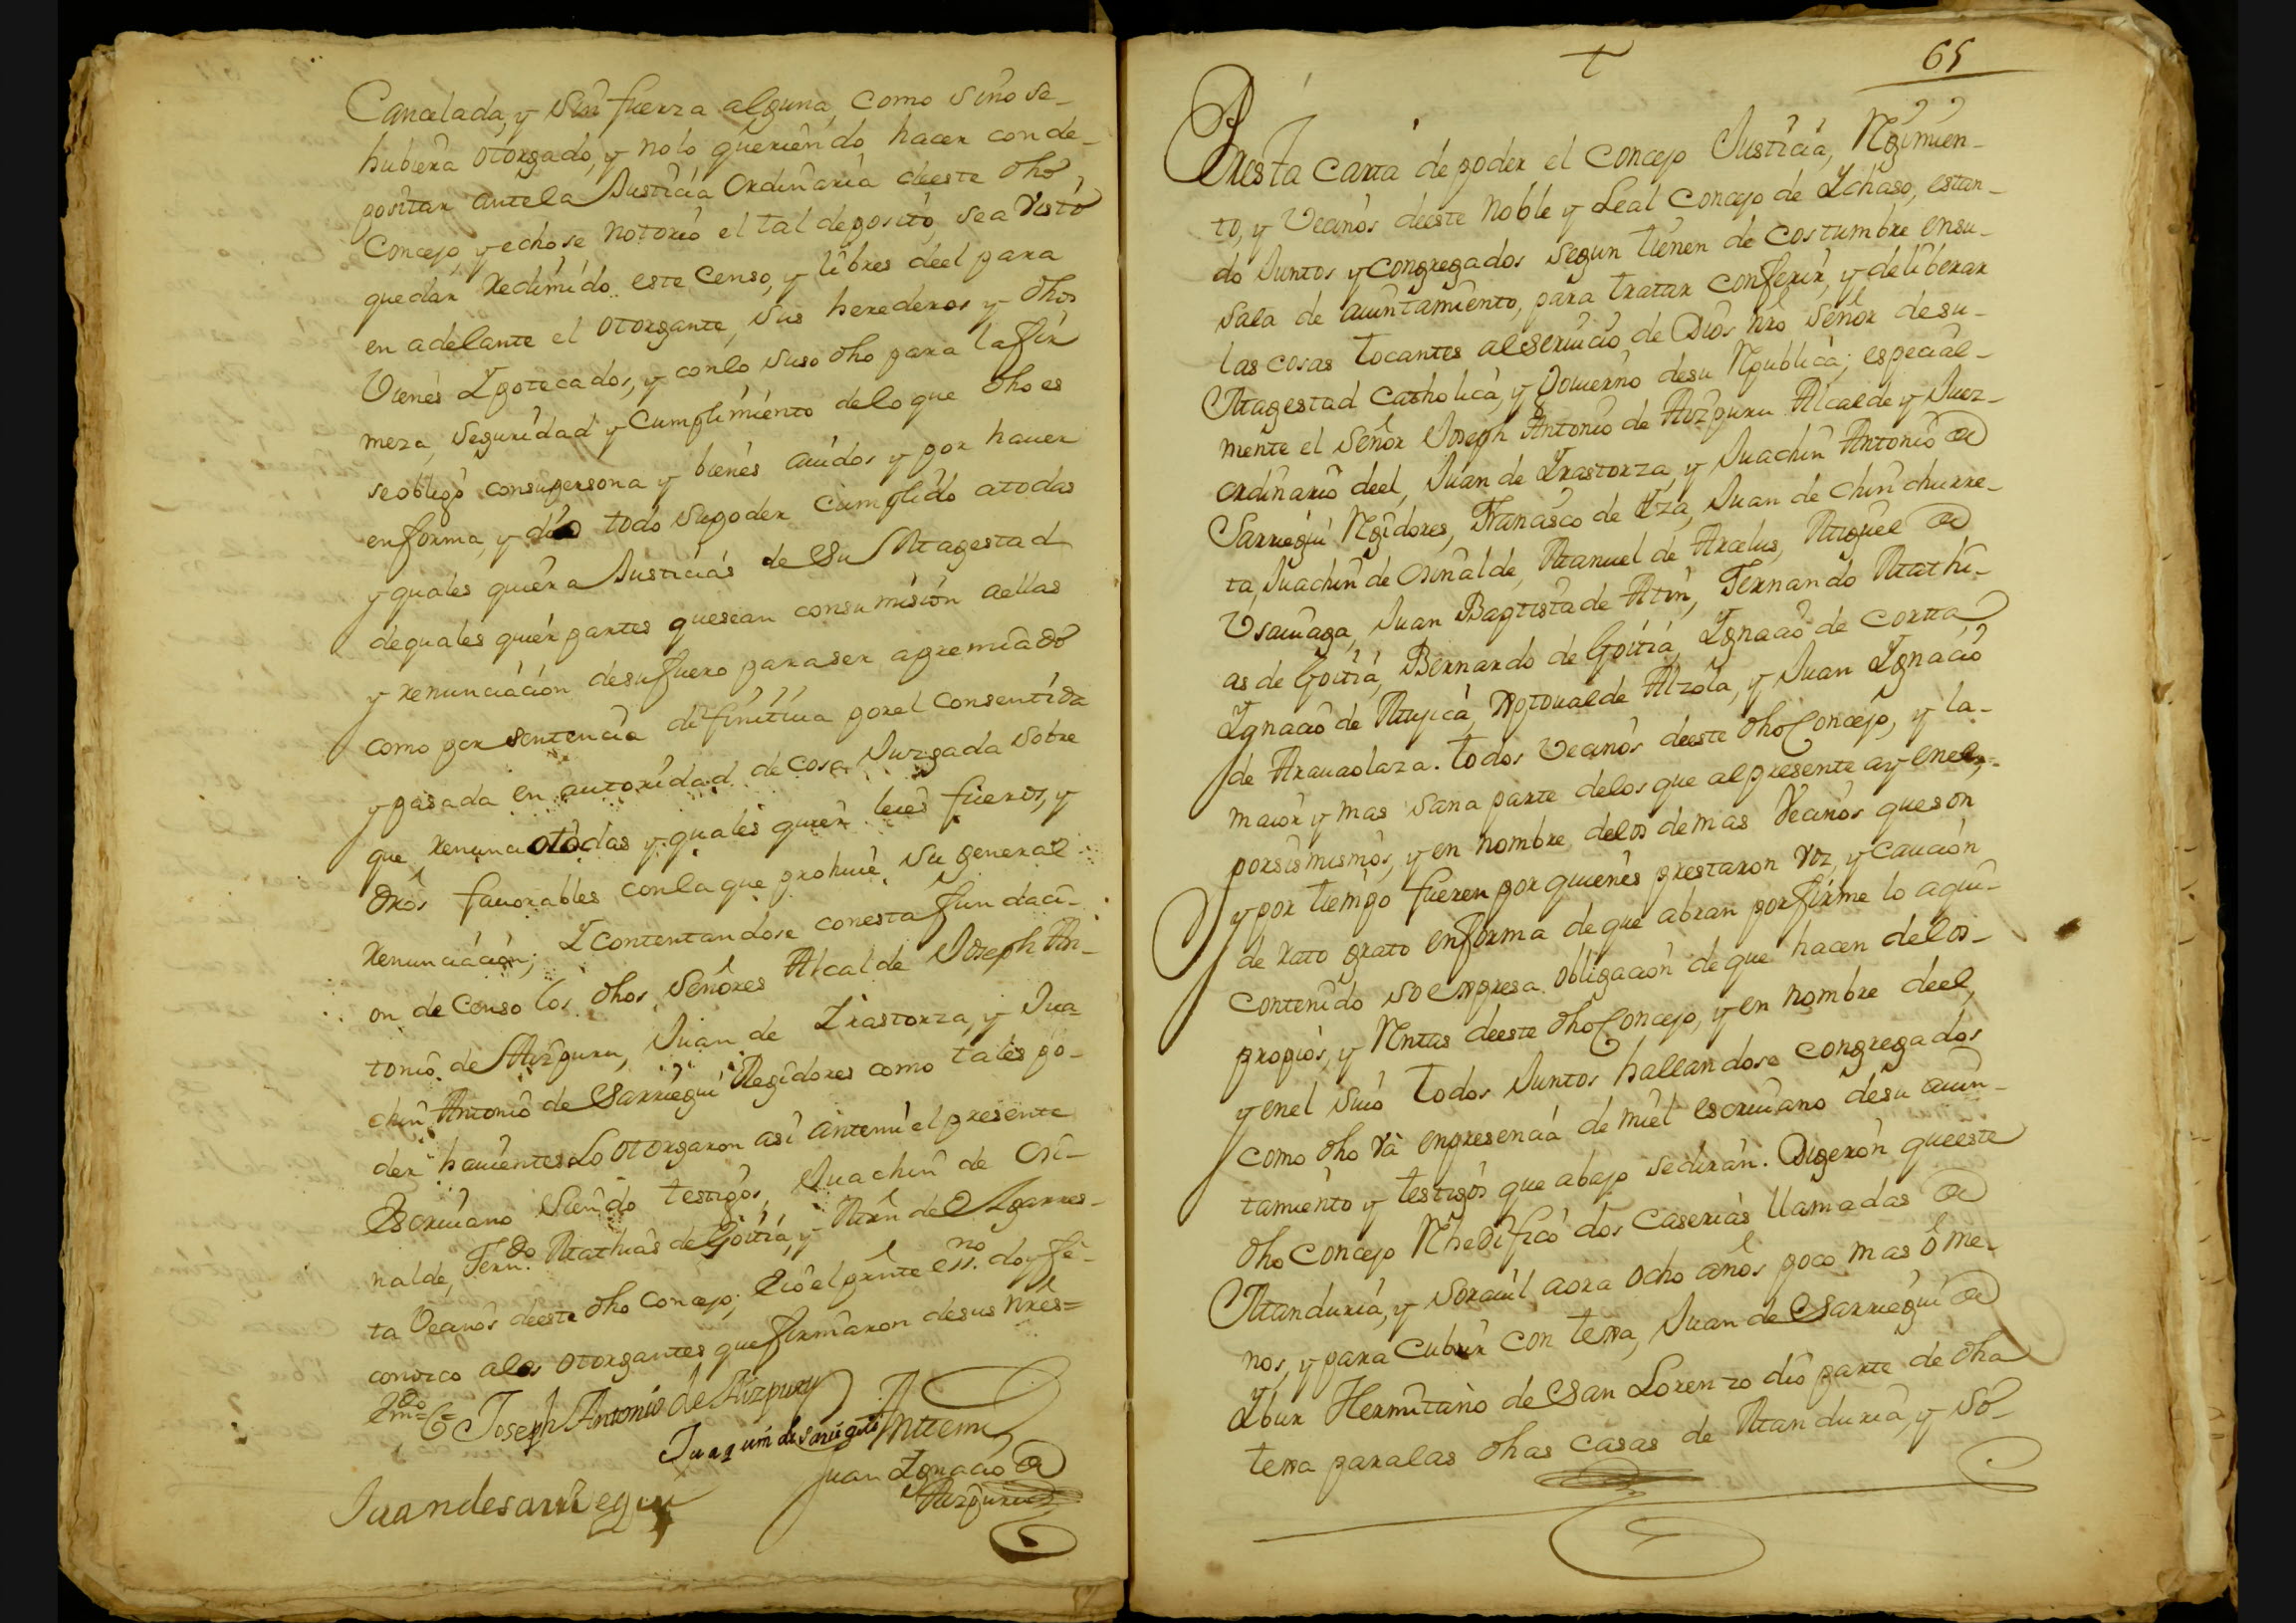 Cancelada, y sin fuerza alguna, como sino se-
hubiera otorgado, y nolo queriendo hacer con de-
positar antela Justicia Ordinaria deeste dho
Concejo, y echose notorio el tal deposito, sea visto
quedar redimido este Censo, y libres deel para
en adelante el otorgante, sus herederos y dhos
Vienes Ypotecados, y conlo suso dho para lafir
meza, seguridad y Cumplimiento delo que dho es
se obligo consupersona y bienes auidos y por hauer
enforma, y dio todo supoder cumplido atodas
y quales quiera Justicias de Su Magestad
dequales quier partes quesean consumision aellas
y renunciacion desufuero paraser apremiado
como por sentencia difinitiua porel Consentida
y pasada en autoridad de cosa Juzgada sobre
que renuncio todas y quales quier leies fueros, y
dros fauorables conla que prohiue su general
renunciacion; Y contentandose conesta fundaci-
on de Censo los dhos Señores Alcalde Joseph An-
tonio de Aizpuru, Juan de Yrastorza, y Jua
chin Antonio de Sarriegui Regidores como tales po-
der hauientes Lo otorgaron asi antemi el presente
Escriuano siendo testigos, Juachin de Osi-
nalde, Fern.do Mathias de Goitia, y Mrn de Ygarres-
ta Vecinos deeste dho Concejo, E io el prnte ess.no doy fe
conozco alos otorgantes que firmaron desus nres=
Joseph Antonio de Aizpuru
Juaquin de Sariegui Antemi
Juan Ygnacio de
Juandesarriegui Aizpuru
+ 65
En esta carta de poder el Concejo Justicia, Rgimien-
to, y Vecinos deeste Noble y Leal Concejo de Ychaso, estan-
do Juntos y Congregados segun tienen de costumbre ensu-
sala de aiuntamiento, para tratar conferir, y deliberar
las cosas tocantes alseruicio de Dios nro Señor desu-
Magestad Catholica, y Gouierno desu Rpublica; especial-
mente el Señor Joseph Antonio de Aizpuru Alcalde y Juez-
ordinario deel, Juan de Yrastorza, y Juachin Antonio de
Sarriegui Rgidores, Francisco de Yza, Juan de Chinchurre-
ta, Juachin de Osinalde, Manuel de Arcelus, Miguel de
Vsauiaga, Juan Baptista de Atin, Fernando Mathi-
as de Goitia, Bernardo de Goitia, Ygnacio de Corta,
Ygnacio de Mugica, Xptoual de Alzola, y Juan Ygnacio
de Arauaolaza. todos Vecinos deeste dho Concejo, y la-
maior y mas sana parte delos que alpresente ay enel,
porsi mismos, y en nombre delos demas Vecinos queson
y por tiempo fueren por quienes prestaron voz, y Caucion
de rato grato enforma de que abran por firme lo aqui-
contenido so expresa obligacion de que hacen delos-
propios, y Rntas deeste dho Concejo, y en nombre deel,
y enel suio todos Juntos hallandose congregados
como dho va enpresencia de miel escriuano desu aiun-
tamiento y testigos que abajo sediran. Digeron queeste
dho Concejo Rhedifico dos Caserias llamadas de
Manduria, y Sorauil aora ocho años poco mas ô me-
nos, y para Cubrir con texa, Juan de Sarriegui de
Ybur Hermitaño de San Lorenzo dio parte de dha
texa paralas dhas casas de Manduria, y So-